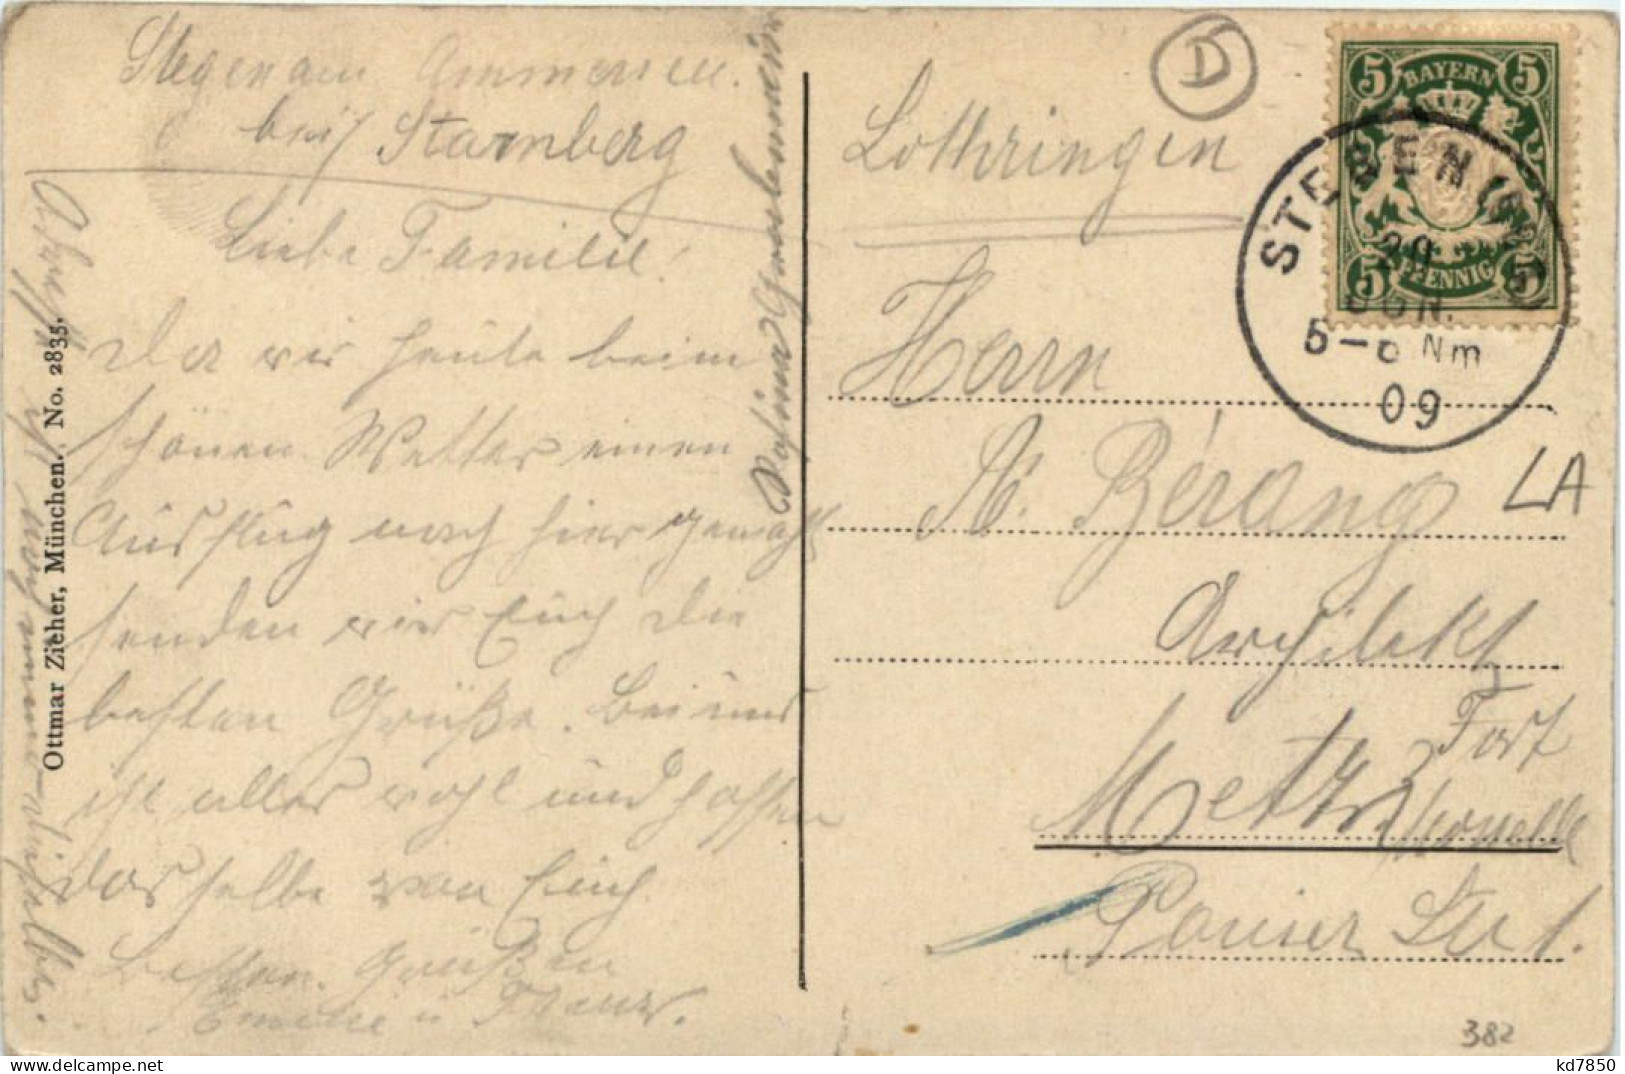 Stegen am Ammersee.
bei Starnberg
Liebe Familie!
Da wir heute beim
schönen Wetter einen
Ausflug nach hier gemacht
senden wir Euch die
besten Grüße. Bei uns
ist alles wohl und hoffen
dasselbe von Euch.
Besten Grüßen
Emilie u
Ottmar Zieher, München. No. 2835.
D
Lothringen
BAYERN
5 5
5 5
PFENNIG
STEBEN
20
JUN.
5-6 Nm
09
Herrn
N. Bérang
LA
Architekt
Metz
Fort
Str 1.
382
kd7850